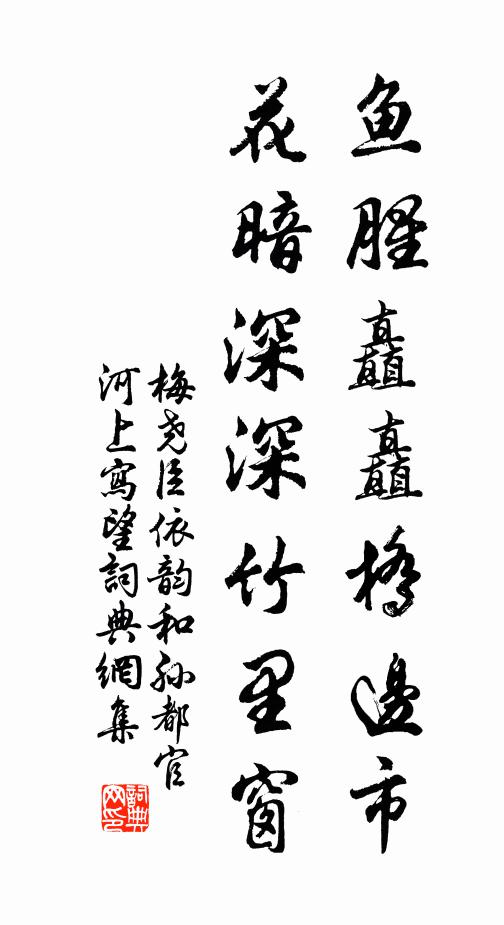 鱼腥矗矗橋邊市
花暗深深竹里窗
梅尧臣依韵和孙都官
河上寫望詞典網集
詞典
网印